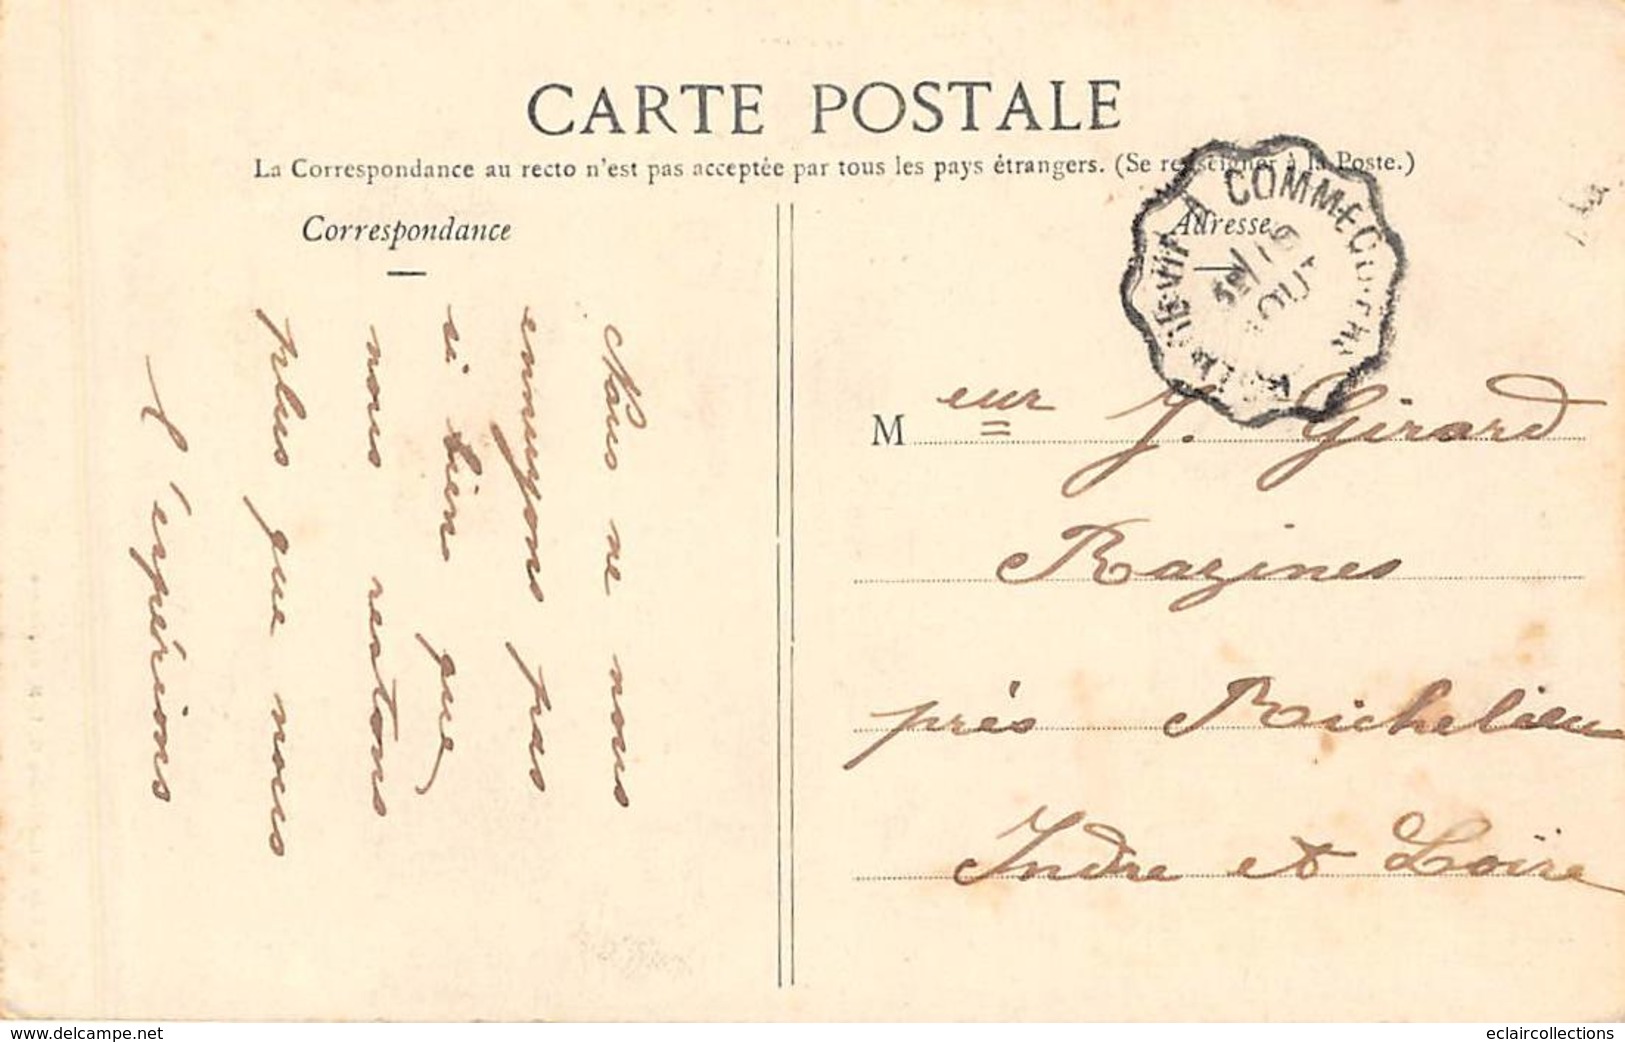 CARTE POSTALE
La Correspondance au recto n'est pas acceptée par tous les pays étrangers. (Se renseigner à la Poste.)
Correspondance
Adresse
COMMEQUIERS
Nous ne nous
ennuyons pas
si bien que
nous restons
plus que nous
l'espérions
M eur J. Girard
Razines
près Richelieu
Indre et Loire
www.delcampe.net
eclaircollections